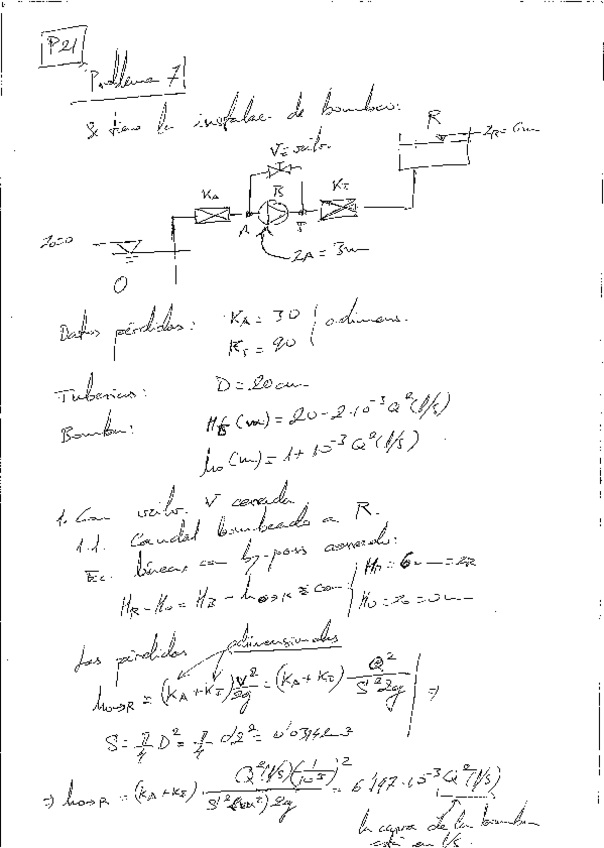 P21
Problema 7
Se tiene la instalac. de bombeo:
R
ZR = 6m
V = valv.
KA
B
KI
A
I
Z0=0
ZA = 3m
O
Datos pérdidas: KA = 30 } adimens.
KI = 90
Tuberias: D = 20 cm
Bomba: HB (m) = 20 - 2·10^-3 Q²(l/s)
ho (m) = 1 + 10^-3 Q²(l/s)
1. Con valv. V cerrada.
1.1. Caudal bombeado a R.
Ec. lineas con by-pass cerrado:
HR - Ho = HB - ho→R con { HR = 6m = ZR
Ho = zo = 0m
Las pérdidas adimensionales
ho→R = (KA + KI) V²/2g = (KA + KI) Q²/S²2g ⇒
S = π/4 D² = π/4 0'2² = 0'0314 m²
⇒ ho→R = (KA + KI) · Q²(l/s)(1/10³)²/S²(m²)2g = 6'197·10^-3 Q²(l/s)
la curva de la bomba
está en l/s.